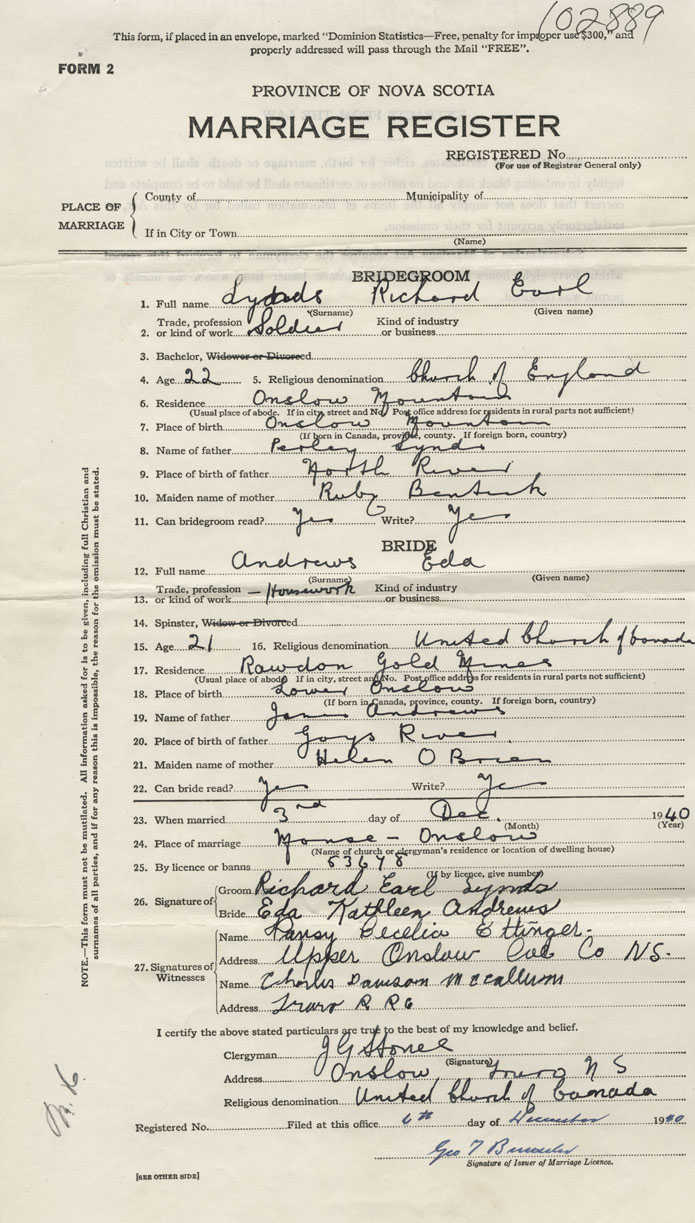 102889
This form, if placed in an envelope, marked "Dominion Statistics—Free, penalty for improper use $300," and
properly addressed will pass through the Mail "FREE".
FORM 2
PROVINCE OF NOVA SCOTIA
MARRIAGE REGISTER
REGISTERED No.
(For use of Registrar General only)
PLACE OF MARRIAGE
County of Municipality of
If in City or Town
(Name)
BRIDEGROOM
1. Full name Lynds Richard Earl
(Surname) (Given name)
2. Trade, profession or kind of work Soldier Kind of industry or business
3. Bachelor, Widower or Divorced
4. Age 22 5. Religious denomination Church of England
6. Residence Onslow Mountain
(Usual place of abode. If in city, street and No. Post office address for residents in rural parts not sufficient)
7. Place of birth Onslow Mountain
(If born in Canada, province, county. If foreign born, country)
8. Name of father Perley Lynds
9. Place of birth of father North River
10. Maiden name of mother Ruby
11. Can bridegroom read? Yes Write? Yes
BRIDE
12. Full name Andrews Eda
(Surname) (Given name)
13. Trade, profession or kind of work — Housework Kind of industry or business
14. Spinster, Widow or Divorced
15. Age 21 16. Religious denomination United Church of Canada
17. Residence Rawdon Gold Mines
(Usual place of abode. If in city, street and No. Post office address for residents in rural parts not sufficient)
18. Place of birth Lower Onslow
(If born in Canada, province, county. If foreign born, country)
19. Name of father James Andrews
20. Place of birth of father Gays River
21. Maiden name of mother Helen O Brien
22. Can bride read? Yes Write? Yes
23. When married 3rd day of Dec. 1940
(Month) (Year)
24. Place of marriage Manse – Onslow
(Name of church or clergyman's residence or location of dwelling house)
25. By licence or banns 53678
(If by licence, give number)
26. Signature of
Groom Richard Earl Lynds
Bride Eda Kathleen Andrews
27. Signatures of Witnesses
Name Pansy Cecelia Ettinger.
Address Upper Onslow Col Co N.S.
Name Charles Dawson McCallum
Address Truro R R 6
I certify the above stated particulars are true to the best of my knowledge and belief.
Clergyman J G Stones
(Signature)
Address Onslow Truro N S
Religious denomination United Church of Canada
Registered No. Filed at this office 6th day of December 1940
Geo T
Signature of Issuer of Marriage Licence.
[SEE OTHER SIDE]
NOTE.—This form must not be mutilated. All information asked for is to be given, including full Christian and
surnames of all parties, and if for any reason this is impossible, the reason for the omission must be stated.